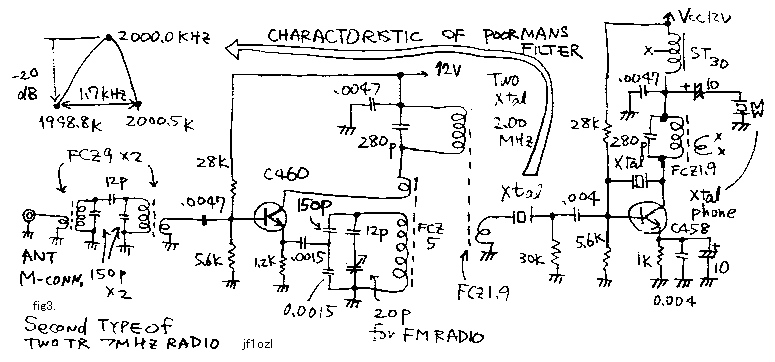 2000.0KHz
CHARACTORISTIC OF POORMANS FILTER
-20 dB
1.7KHz
1998.8K
2000.5K
Vcc12V
X
ST30
12V
.0047
280p
TWO
Xtal
2.00
MHz
.0047
+ 10
28K
280p
Xtal
FCZ1.9
Xtal
phone
FCZ9 X2
12p
28K
C460
.0047
150p
12p
FCZ
5
Xtal
.004
C458
ANT
M-CONN.
150p
X2
5.6K
1.2K
.0015
0.0015
20p
for FM RADIO
FCZ1.9
30K
5.6K
1K
10
0.004
fig3.
Second TYPE of
TWO TR 7MHZ RADIO jf1ozl